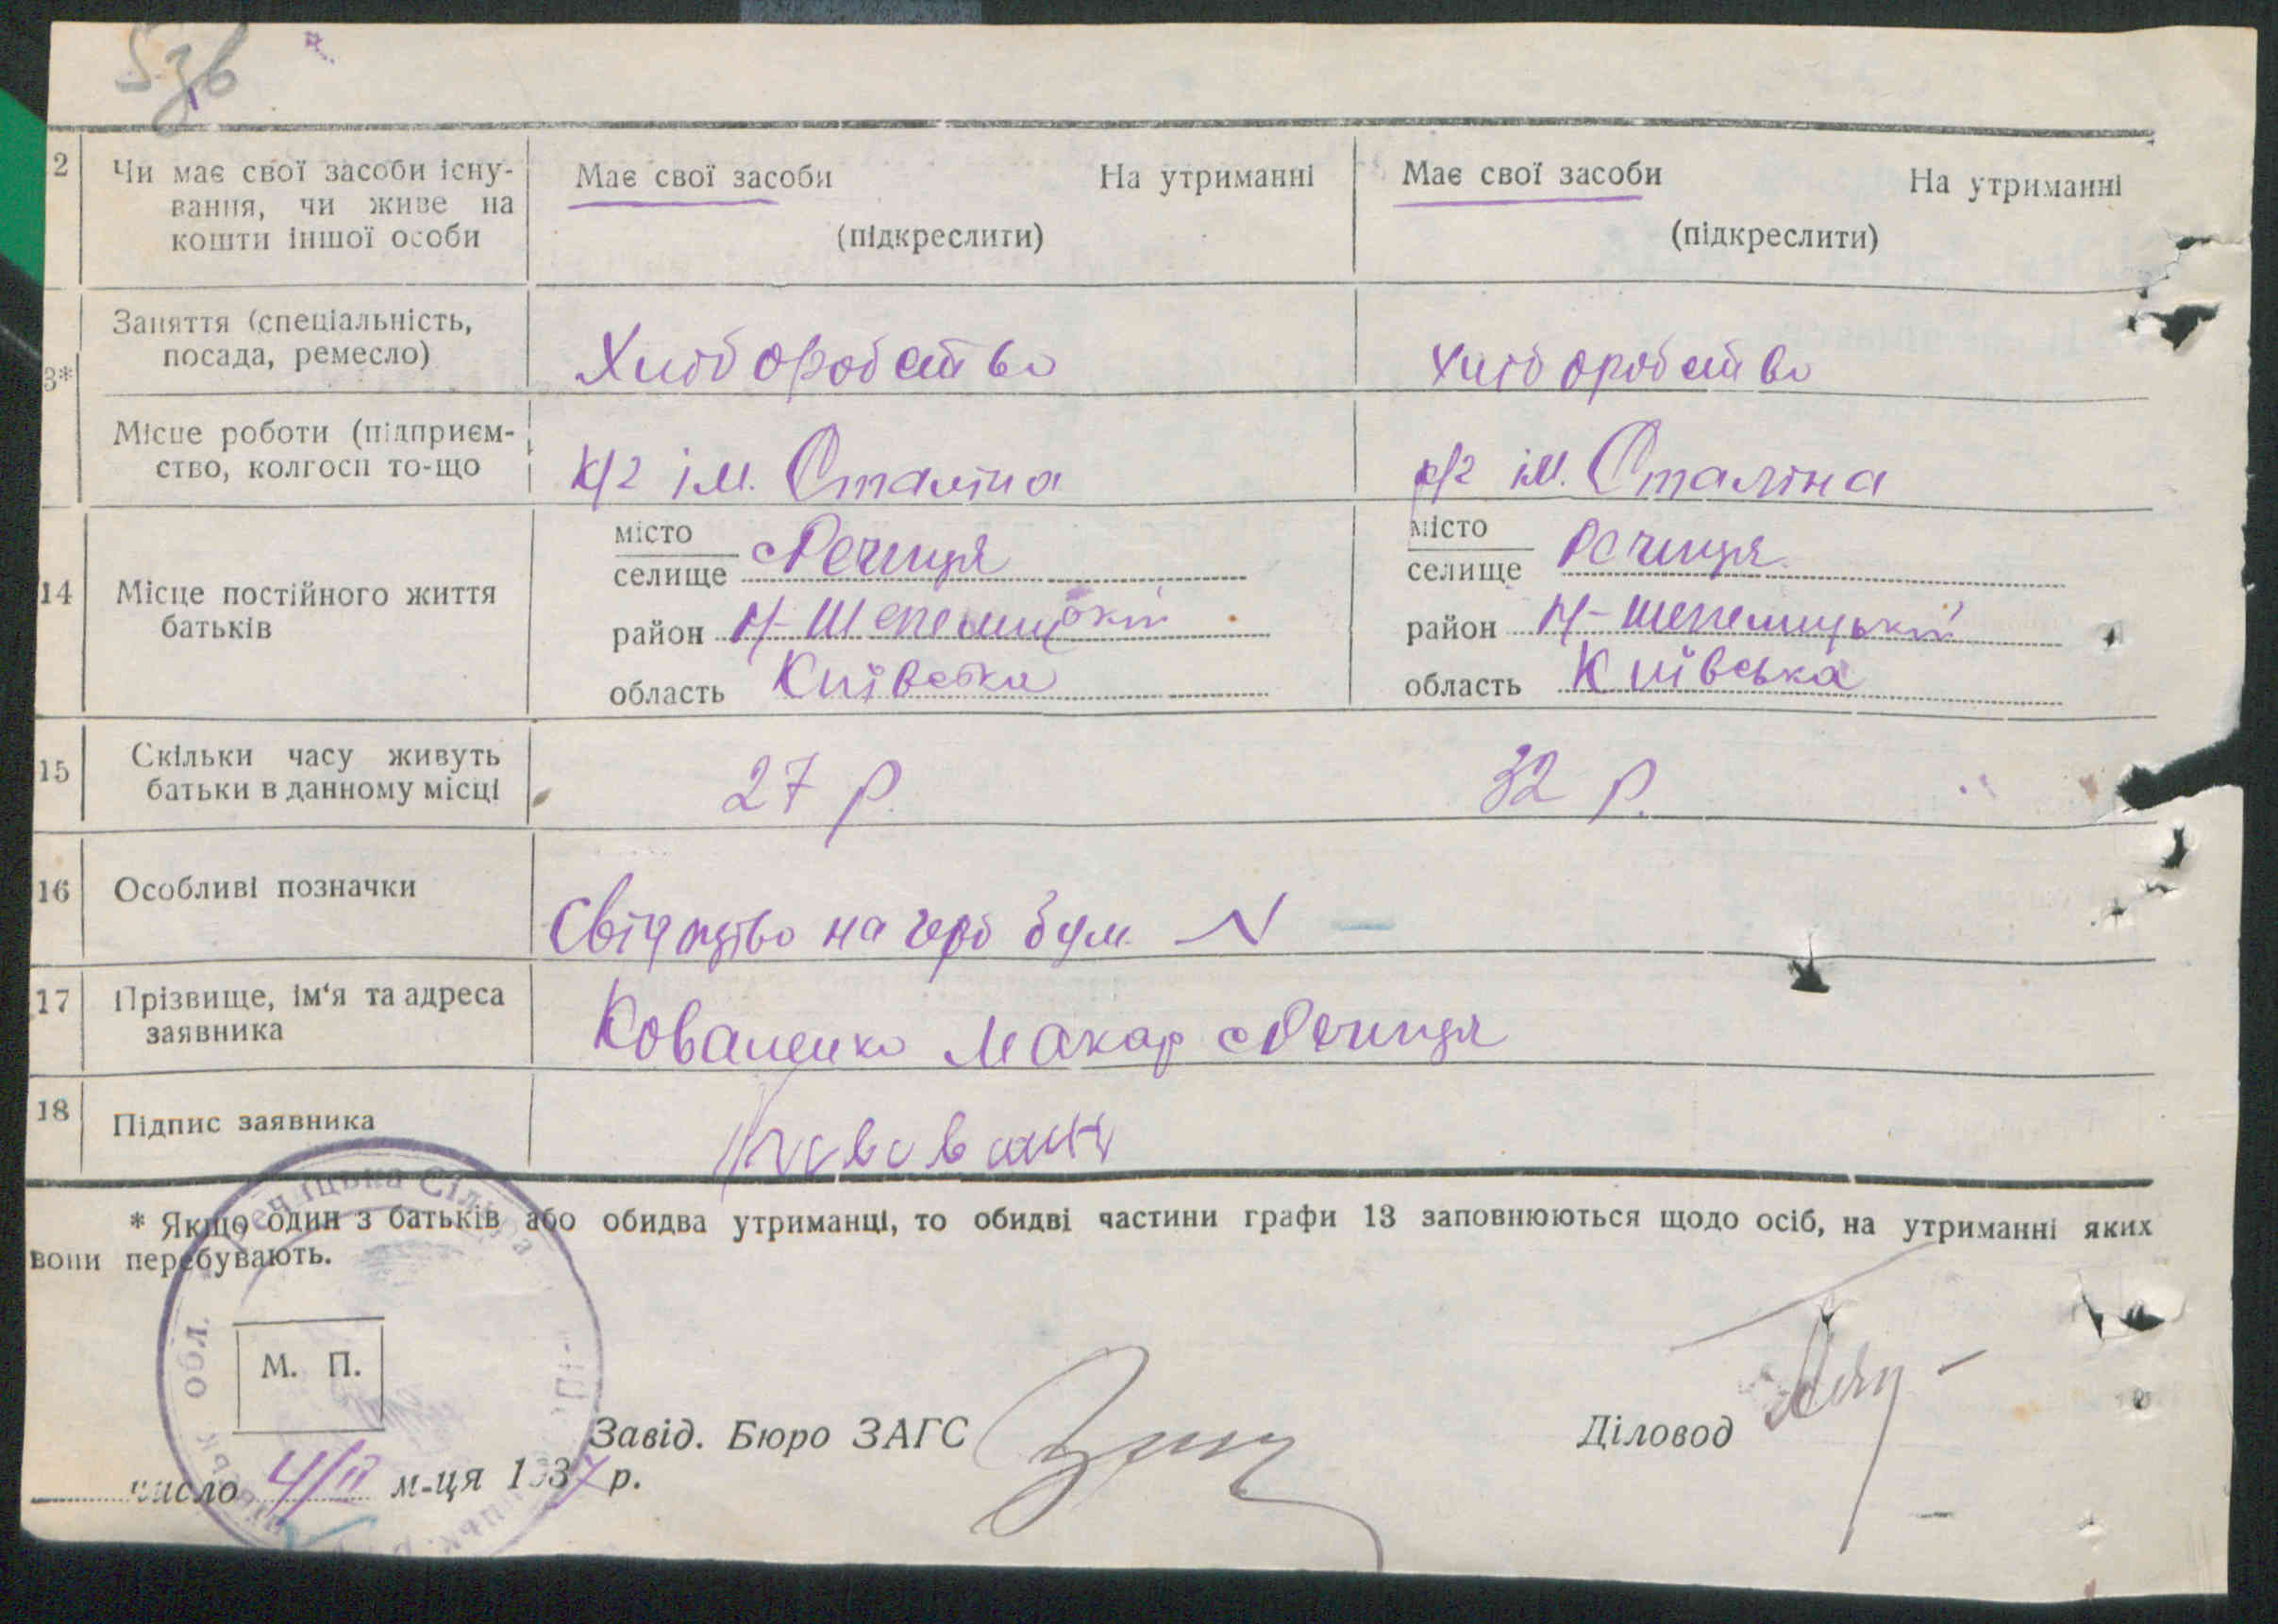 536
2 Чи має свої засоби існу- Має свої засоби На утриманні Має свої засоби На утриманні
вання, чи живе на
кошти іншої особи (підкреслити) (підкреслити)
Заняття (спеціальність,
посада, ремесло) Хлібороб ство Хлібороб ство
3*
Місце роботи (підприєм-
ство, колгосп то-що К/г ім. Сталіна к/г ім. Сталіна
місто місто
селище с Речиця селище Речиця
14 Місце постійного життя
батьків район Н-Шепелицький район Н-Шепелицький
область Київська область Київська
15 Скільки часу живуть
батьки в данному місці 27 р. 32 р.
16 Особливі позначки
Свідоцтво на герб бум. N –
17 Прізвище, ім‘я та адреса
заявника Коваленко Макар с Речиця
18 Підпис заявника
* Якщо один з батьків або обидва утриманці, то обидві частини графи 13 заповнюються щодо осіб, на утриманні яких
вони перебувають.
обл.
М. П.
Завід. Бюро ЗАГС Діловод
число 4/II м-ця 1937 р.